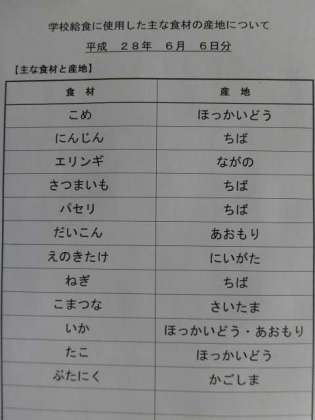 学校給食に使用した主な食材の産地について
平成 28年 6月 6日分
【主な食材と産地】
食 材 産 地
こめ ほっかいどう
にんじん ちば
エリンギ ながの
さつまいも ちば
パセリ ちば
だいこん あおもり
えのきたけ にいがた
ねぎ ちば
こまつな さいたま
いか ほっかいどう・あおもり
たこ ほっかいどう
ぶたにく かごしま